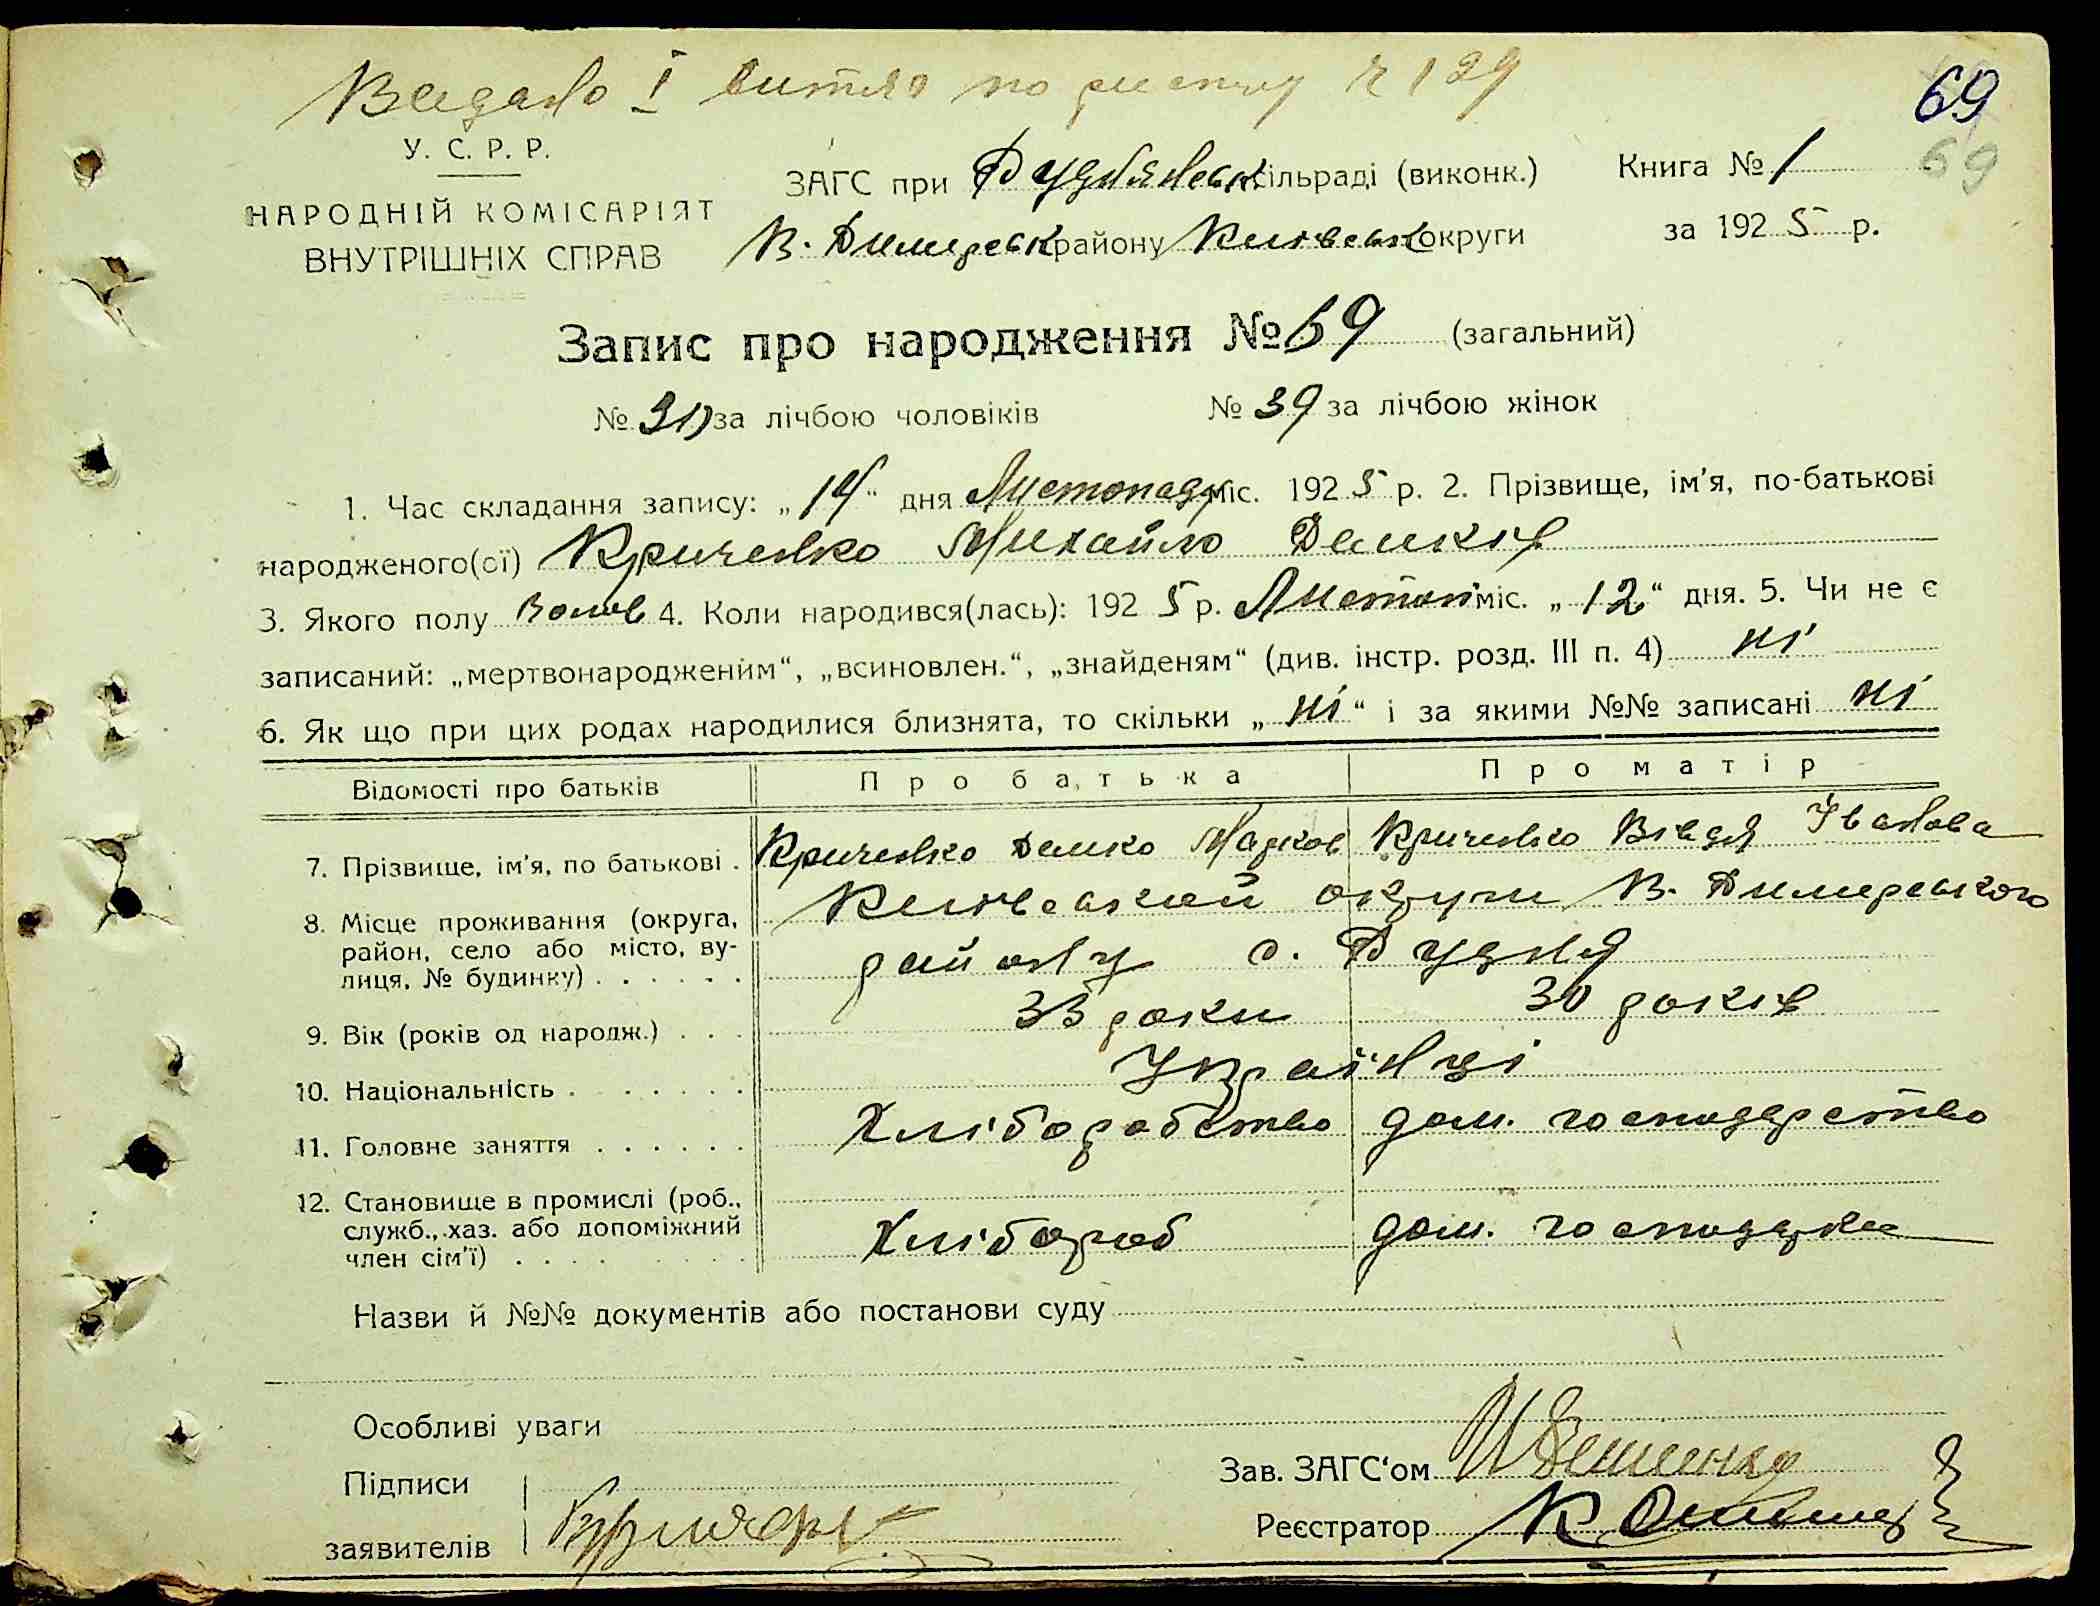 Видано I витяг по
69
69
У. С. Р. Р.
НАРОДНІЙ КОМІСАРІЯТ
ВНУТРІШНІХ СПРАВ
ЗАГС при Руднянськ сільраді (виконк.)
В. Димерськ району Київськ округи
Книга № 1
за 1925 р.
Запис про народження № 69 (загальний)
№ за лічбою чоловіків № 39 за лічбою жінок
1. Час складання запису: „14“ дня Листопаду міс. 1925 р. 2. Прізвище, ім'я, по-батькові
народженого(ої) Криченко Михайло Демків
3. Якого полу 4. Коли народився(лась): 1925 р. Листоп міс. „12“ дня. 5. Чи не є
записаний: „мертвонародженим“, „всиновлен.“, „знайденям“ (див. інстр. розд. III п. 4) ні
6. Як що при цих родах народилися близнята, то скільки „ні“ і за якими №№ записані ні
Відомості про батьків Про батька Про матір
7. Прізвище, ім'я, по батькові . Криченко Демко Марков Криченко Іванова
8. Місце проживання (округа, район, село або місто, вулиця, № будинку) . . . . . . Київської округи В. Димерського
району с. Рудня
9. Вік (років од народж.) . . . 33 роки 30 років
10. Національність . . . . . . . Українці
11. Головне заняття . . . . . . Хліборобство дом. господарство
12. Становище в промислі (роб., служб., хаз. або допоміжний член сім'ї) . . . . . . . . Хлібороб дом. господарка
Назви й №№ документів або постанови суду
Особливі уваги
Підписи
заявителів
Зав. ЗАГС'ом
Реєстратор